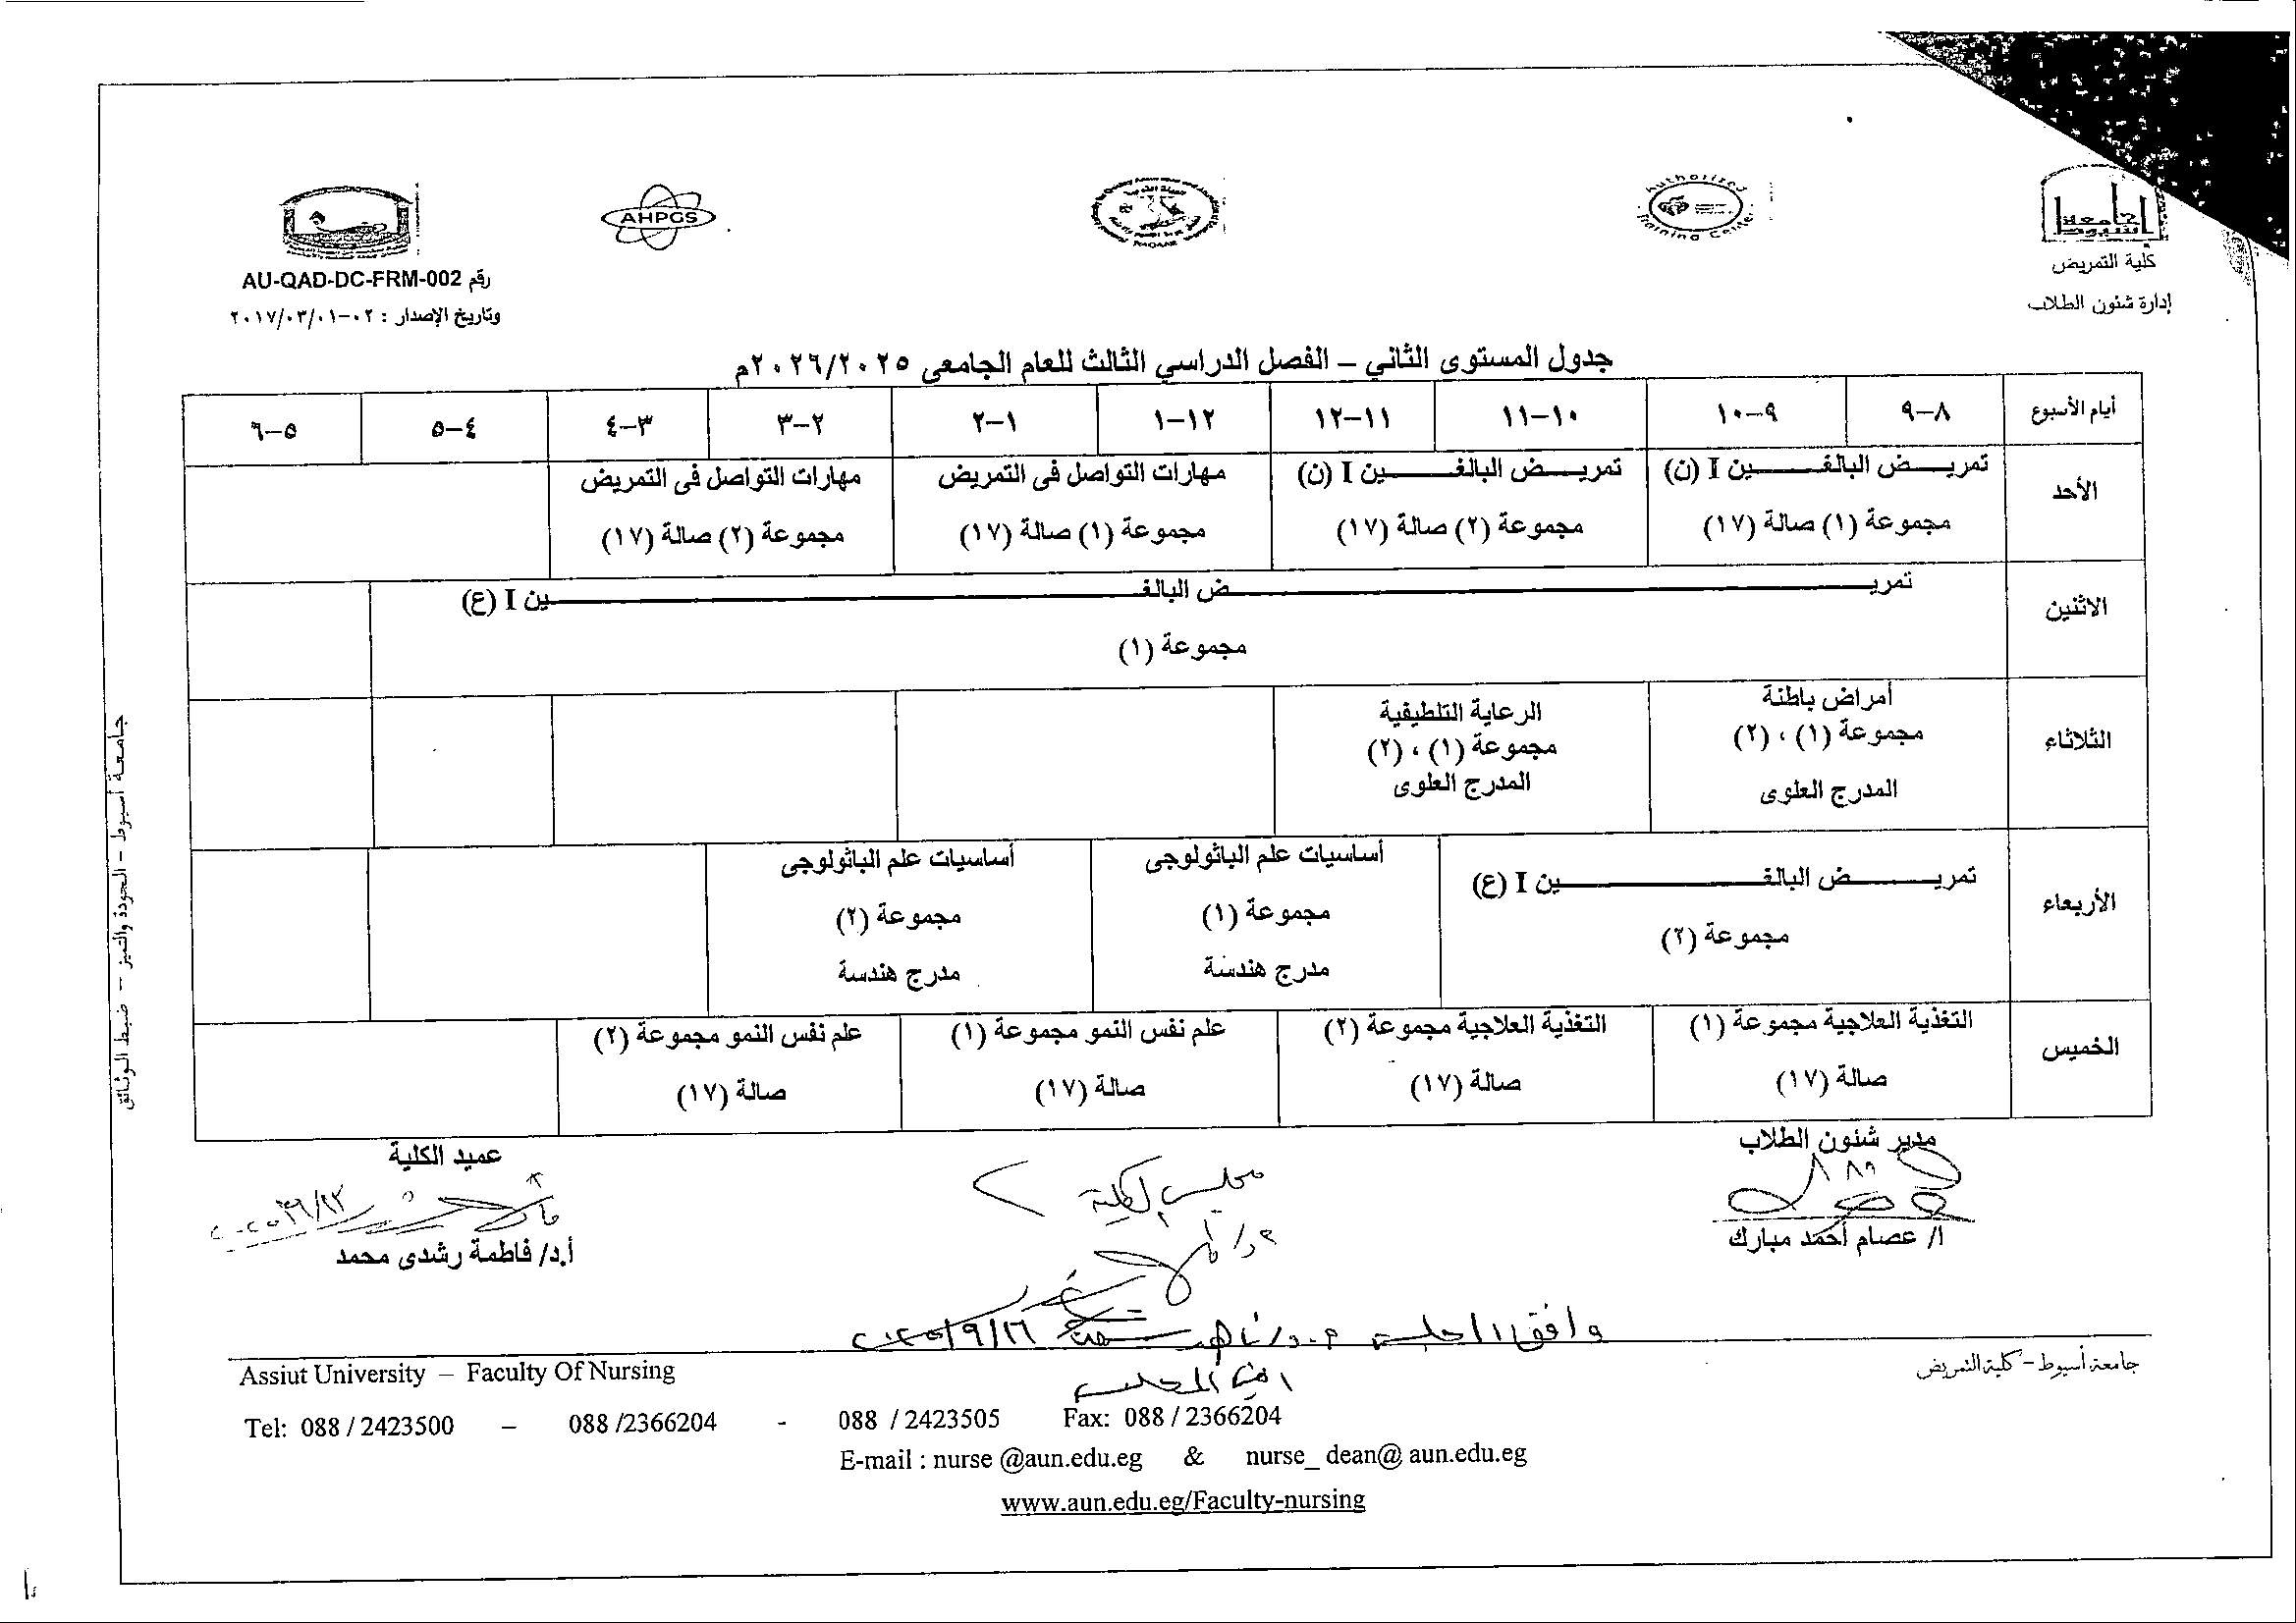 كلية التمريض
إدارة شئون الطلاب
Authorized Training Center
AHPGS
رقم AU-QAD-DC-FRM-002
وتاريخ الإصدار : ٠٢-٢٠١٧/٠٣/٠١
جدول المستوى الثاني – الفصل الدراسي الثالث للعام الجامعى ٢٠٢٦/٢٠٢٥م
أيام الأسبوع ٨–٩ ٩–١٠ ١٠–١١ ١١–١٢ ١٢–١ ١–٢ ٢–٣ ٣–٤ ٤–٥ ٥–٦
الأحد
تمريـــض البالغـــــين I (ن)
مجموعة (١) صالة (١٧)
تمريـــض البالغـــــين I (ن)
مجموعة (٢) صالة (١٧)
مهارات التواصل فى التمريض
مجموعة (١) صالة (١٧)
مهارات التواصل فى التمريض
مجموعة (٢) صالة (١٧)
الاثنين
تمريـــــــــــــض البالغـــــــــــــين I (ع)
مجموعة (١)
الثلاثاء
أمراض باطنة
مجموعة (١) ، (٢)
المدرج العلوى
الرعاية التلطيفية
مجموعة (١) ، (٢)
المدرج العلوى
الأربعاء
تمريــــــض البالغــــــــين I (ع)
مجموعة (٢)
أساسيات علم الباثولوجى
مجموعة (١)
مدرج هندسة
أساسيات علم الباثولوجى
مجموعة (٢)
مدرج هندسة
الخميس
التغذية العلاجية مجموعة (١)
صالة (١٧)
التغذية العلاجية مجموعة (٢)
صالة (١٧)
علم نفس النمو مجموعة (١)
صالة (١٧)
علم نفس النمو مجموعة (٢)
صالة (١٧)
مدير شئون الطلاب
أ/ عصام أحمد مبارك
مجلس الكلية
عميد الكلية
أ.د/ فاطمة رشدى محمد
وافق المجلس
٢٠٢٥/٩/١٦
أمين المجلس
جامعة أسيوط - الجودة والتميز -- ضبط الوثائق
جامعة أسيوط - كلية التمريض
Assiut University – Faculty Of Nursing
Tel: 088 / 2423500 – 088 /2366204 - 088 / 2423505 Fax: 088 / 2366204
E-mail : nurse @aun.edu.eg & nurse_ dean@ aun.edu.eg
www.aun.edu.eg/Faculty-nursing